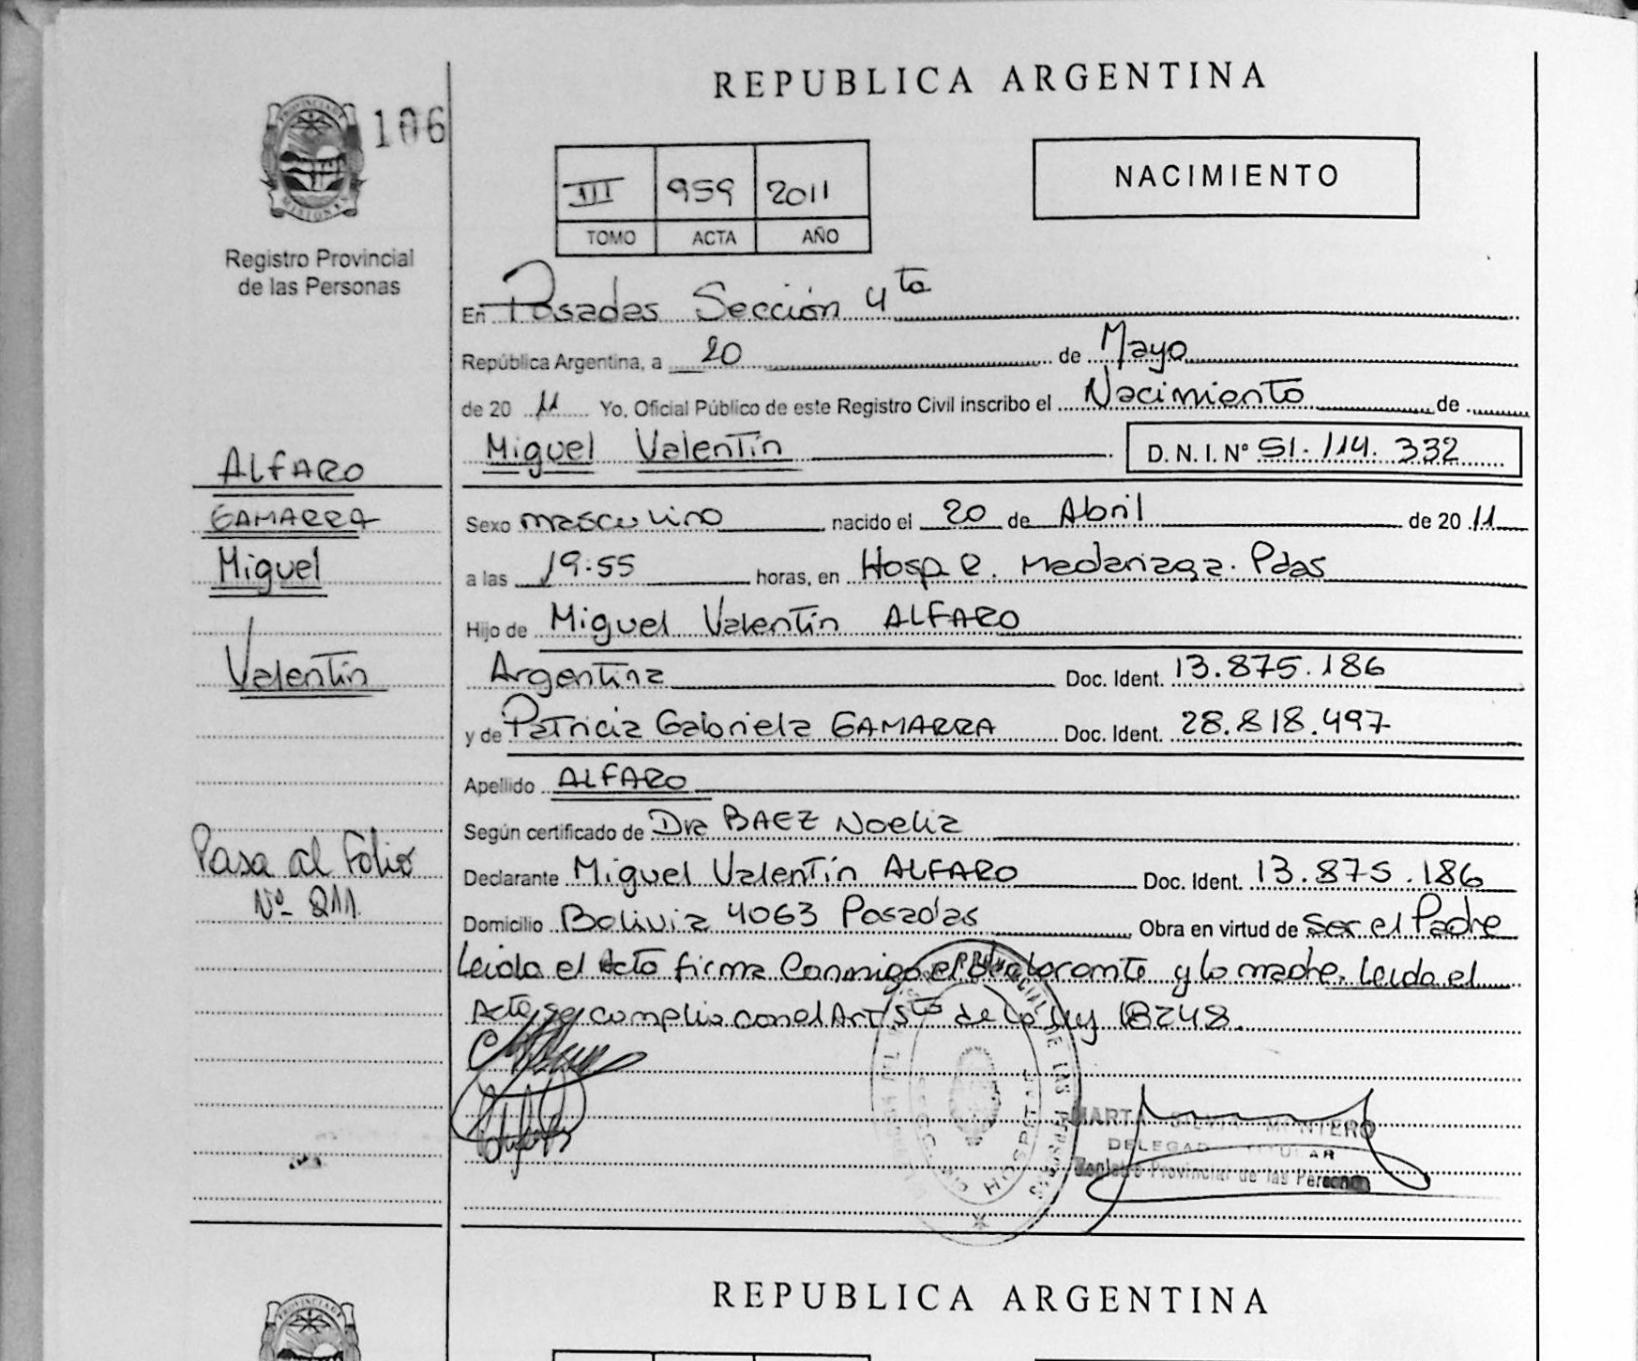 REPUBLICA ARGENTINA
106
NACIMIENTO
III 959 2011
TOMO ACTA AÑO
PROVINCIA DE MISIONES
Registro Provincial
de las Personas
En Posadas Sección 4ta
República Argentina, a 20 de Mayo
de 20 11 Yo, Oficial Público de este Registro Civil inscribo el Nacimiento de
Miguel Valentín D. N. I. Nº 51.114.332
ALFARO
GAMARRA
Miguel
Valentín
Sexo masculino nacido el 20 de Abril de 20 11
a las 19:55 horas, en Hosp. R. Madariaga. Pdas
Hijo de Miguel Valentín ALFARO
Argentina Doc. Ident. 13.875.186
y de Patricia Gabriela GAMARRA Doc. Ident. 28.818.497
Apellido ALFARO
Según certificado de Dra BAEZ Noelia
Pasa al Folio
Nº 211.
Declarante Miguel Valentín ALFARO Doc. Ident. 13.875.186
Domicilio Bolivia 4063 Posadas Obra en virtud de ser el Padre
Leida el Acta firma Conmigo el declarante y la madre. Leida el
Acta se cumplio con el Art 5to de la Ley 18248.
MARTA SILVIA MONTERO
DELEGADA TITULAR
Registro Provincial de las Personas
REPUBLICA ARGENTINA